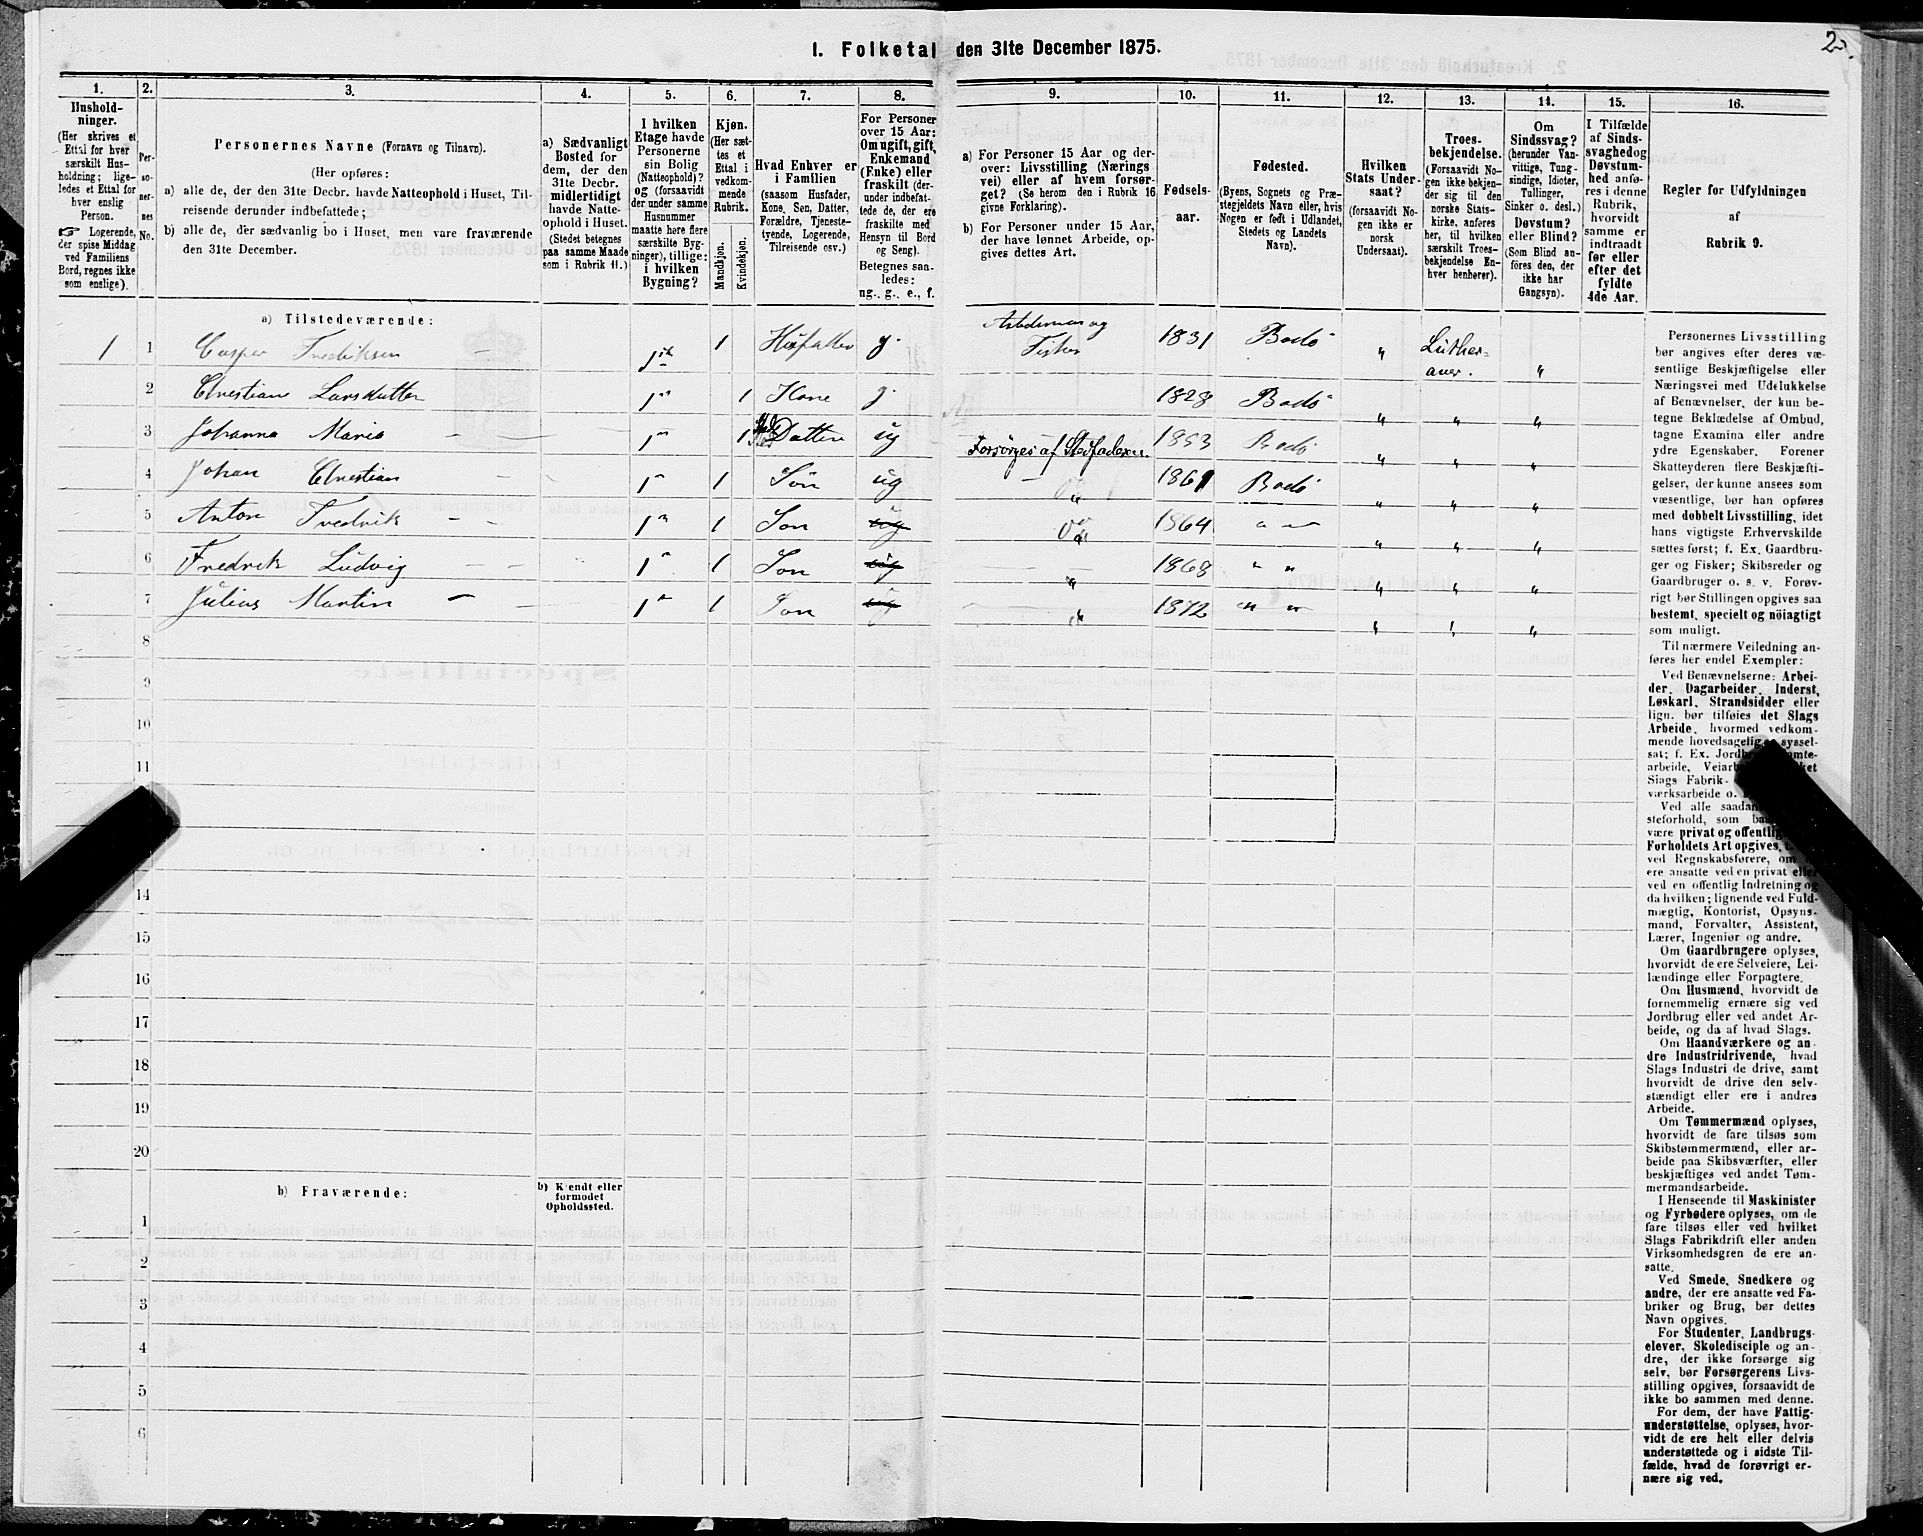 I. Folketal den 31te December 1875.
2.
1.
Hushold-
ninger.
(Her skrives et
Ettal for hver
særskilt Hus-
holdning; lige-
ledes et Ettal for
hver enslig
Person.
☞ Logerende,
der spise Middag
ved Familiens
Bord, regnes ikke
som enslige).
2.
Per-
so-
ner-
nes
No.
3.
Personernes Navne (Fornavn og Tilnavn).
(Her opføres:
a) alle de, der den 31te Decbr. havde Natteophold i Huset, Til-
reisende derunder indbefattede;
b) alle de, der sædvanlig bo i Huset, men vare fraværende
den 31te December.
4.
a) Sædvanligt
Bosted for
dem, der den
31te Decbr.
midlertidigt
havde Natte-
ophold i Huset.
(Stedet betegnes
paa samme Maade
som i Rubrik 11.)
5.
I hvilken
Etage havde
Personerne
sin Bolig
(Natteophold)?
og (forsaavidt
der under samme
Husnummer
maatte høre flere
særskilte Byg-
ninger), tillige:
i hvilken
Bygning?
6.
Kjøn.
(Her sæt-
tes et
Ettal i
vedkom-
mende
Rubrik.
Mandkjøn.
Kvindekjøn.
7.
Hvad Enhver er
i Familien
(saasom Husfader,
Kone, Søn, Datter,
Forældre, Tjeneste-
tyende, Logerende,
Tilreisende osv.)
8.
For Personer
over 15 Aar:
Om ugift, gift,
Enkemand
(Enke) eller
fraskilt (der-
under indbefat-
tede de, der ere
fraskilte med
Hensyn til Bord
og Seng).
Betegnes saa-
ledes:
ug., g., e., f.
9.
a) For Personer 15 Aar og der-
over: Livsstilling (Nærings
vei) eller af hvem forsør-
get? (Se herom den i Rubrik 16
givne Forklaring).
b) For Personer under 15 Aar,
der have lønnet Arbeide, op-
gives dettes Art.
10.
Fødsels-
aar.
11.
Fødested.
(Byens, Sognets og Præ-
stegjeldets Navn eller, hvis
Nogen er født i Udlandet,
Stedets og Landets
Navn).
12.
Hvilken
Stats Under-
saat?
(forsaavidt No-
gen ikke er
norsk
Undersaat).
13.
Troes-
bekjendelse.
(Forsaavidt No-
gen ikke bekjen-
der sig til den
norske Stats-
kirke, anføres
her, til hvilken
særskilt Troes-
bekjendelse En-
hver henhører).
14.
Om
Sindssvag?
(herunder Van-
vittige, Tung-
sindige, Idioter,
Tullinger,
Sinker o. desl.)
Døvstum?
eller Blind?
(Som Blind an-
føres den, der
ikke har
Gangsyn).
15.
I Tilfælde
af Sinds-
svaghed og
Døvstum-
hed anfø-
res i denne
Rubrik,
hvorvidt
samme er
indtraadt
før eller
efter det
fyldte
4de Aar.
16.
Regler for Udfyldningen
af
Rubrik 9.
a) Tilstedeværende:
1 1 Casper Fredriksen 1ste 1 Husfader g. Arbdsman og Fisker 1831 Bodø " Luther-
aner. "
2 Chrestiane Larsdatter 1" 1 Kone g. 1828 Bodø " " "
3 Johanna Maria 1" 1 Sted Datter ug Forsørges af Stedfaderen. 1853 Bodø " " "
4 Johan Chrestian 1" 1 Søn ug " 1861 Bodø " " "
5 Anton Fredrik 1" 1 Søn ug " 1864 " " " " "
6 Fredrik Ludvig 1" 1 Søn ug " 1868 " " " " "
7 Julius Martin 1" 1 Søn ug " 1872 " " " " "
8
9
10
11
14
15
16
17
18
19
20
b) Fraværende:
b) Kjendt eller
formodet
Opholdssted.
1
2
3
4
5
6
Personernes Livsstilling
bør angives efter deres væ-
sentlige Beskjæftigelse eller
Næringsvei med Udelukkelse
af Benævnelser, der kun be-
tegne Beklædelse af Ombud,
tagne Examina eller andre
ydre Egenskaber. Forener
Skatteyderen flere Beskjæfti-
gelser, der kunne ansees som
væsentlige, bør han opføres
med dobbelt Livsstilling, idet
hans vigtigste Erhvervskilde
sættes først; f. Ex. Gaardbru-
ger og Fisker; Skibsreder og
Gaardbruger o. s. v. Forøv-
rigt bør Stillingen opgives saa
bestemt, specielt og nöiagtigt
som muligt.
Til nærmere Veiledning an-
føres her endel Exempler:
Ved Benævnelserne: Arbei-
der, Dagarbeider, Inderst,
Løskarl, Strandsidder eller
lign. bør tilføies det Slags
Arbeide, hvormed vedkom-
mende hovedsagelig syssel-
sat; f. Ex.
arbeide,
Slags Fabrik-
værksarbeide o.
Ved alle
steforhold, som
være privat og offentlig
Forholdets Art opgives,
ved Regnskabsførere, om
ere ansatte ved en privat eller
ved en offentlig Indretning og
da hvilken; lignende ved Fuld-
mægtig, Kontorist, Opsyns-
mand, Forvalter, Assistent,
Lærer, Ingeniør og andre.
Om Gaardbrugere oplyses,
hvorvidt de ere Selveiere, Lei-
lændinge eller Forpagtere.
Om Husmænd, hvorvidt de
fornemmelig ernære sig ved
Jordbrug eller ved andet Ar-
beide, og da af hvad Slags.
Om Haandværkere og an-
dre Industridrivende, hvad
Slags Industri de drive, samt
hvorvidt de drive den selv-
stændigt eller ere i andres
Arbeide.
Om Tømmermænd oplyses,
hvorvidt de fare tilsøs som
Skibstømmermænd, eller ar-
beide paa Skibsværfter, eller
beskjæftiges ved andet Tøm-
mermandsarbeide.
I Henseende til Maskinister
og Fyrbødere oplyses, om de
fare tilsøs eller ved hvilket
Slags Fabrikdrift eller anden
Virksomhedsgren de ere an-
satte.
Ved Smede, Snedkere og
andre, der ere ansatte ved Fa-
briker og Brug, bør dettes
Navn opgives.
For Studenter, Landbrugs-
elever, Skoledisciple og an-
dre, der ikke forsørge sig
selv, bør Forsørgerens Livs-
stilling opgives, forsaavidt de
ikke bo sammen med denne.
For dem, der have Fattig-
understøttelse, oplyses, hvor-
vidt de ere helt eller delvis
understøttede og i sidste Til-
fælde, hvad de forøvrigt er-
nære sig ved.